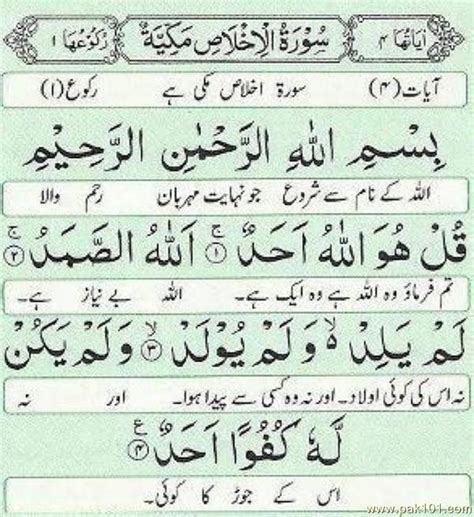 اٰیَاتُهَا ۴ سُوْرَةُ الْاِخْلَاصِ مَكِّيَّةٌ رُكُوْعُهَا ۱
آیات (۴) سورۃ اخلاص مکی ہے رکوع (۱)
بِسْمِ اللّٰهِ الرَّحْمٰنِ الرَّحِيْمِ
اللہ کے نام سے شروع جو نہایت مہربان رحم والا
قُلْ هُوَ اللّٰهُ اَحَدٌ ۚ۝۱ اَللّٰهُ الصَّمَدُ ۚ۝۲
تم فرماؤ وہ اللہ ہے وہ ایک ہے۔ اللہ بے نیاز ہے۔
لَمْ يَلِدْ ۙ وَلَمْ يُوْلَدْ ۙ۝۳ وَلَمْ يَكُنْ
نہ اس کی کوئی اولاد۔ اور نہ وہ کسی سے پیدا ہوا۔ اور نہ
لَّهٗ كُفُوًا اَحَدٌ ۧ۝۴
اس کے جوڑ کا کوئی۔
www.pak101.com